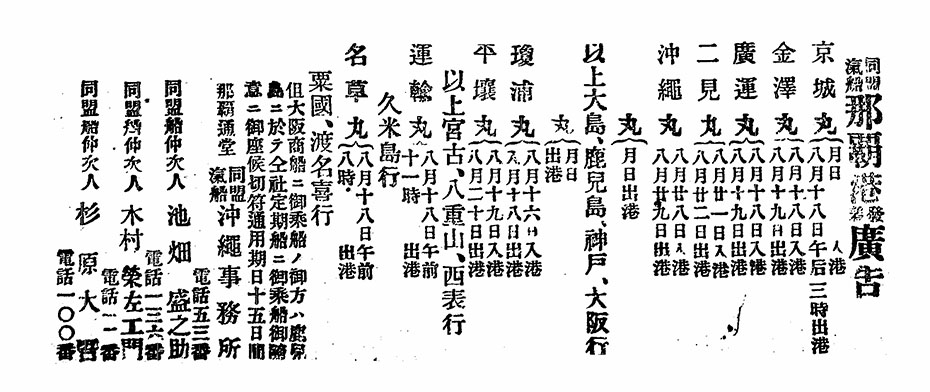 同盟
滊船
那覇港發着廣告
京城丸
月日 入港
八月十八日午后三時出港
金澤丸
八月十七日入港
八月十八日出港
廣運丸
八月十八日入港
八月十九日出港
二見丸
八月廿一日入港
八月廿二日出港
沖繩丸
八月廿八日入港
八月廿九日出港
丸
月日出港
以上大島、鹿兒島、神戸、大阪行
丸
月日
出港
瓊浦丸
八月十六日入港
八月十八日出港
平壤丸
八月十九日入港
八月二十日出港
以上宮古、八重山、西表行
運輸丸
八月十八日午前
十一時 出港
久米島行
名草丸
八月十八日午前
八時 出港
粟國、渡名喜行
但大阪商船ニ御乘船ノ御方ハ鹿兒
島ニ於テ仝社定期船ニ御乘船御隨
意ニ御座候切符通用期日十五日間
那覇通堂 同盟滊船 沖繩事務所
電話五三番
同盟船仲次人 池畑盛之助
電話一三六番
同盟船仲次人 木村榮左工門
電話一一番
同盟船仲次人 杉原大
電話一〇〇番